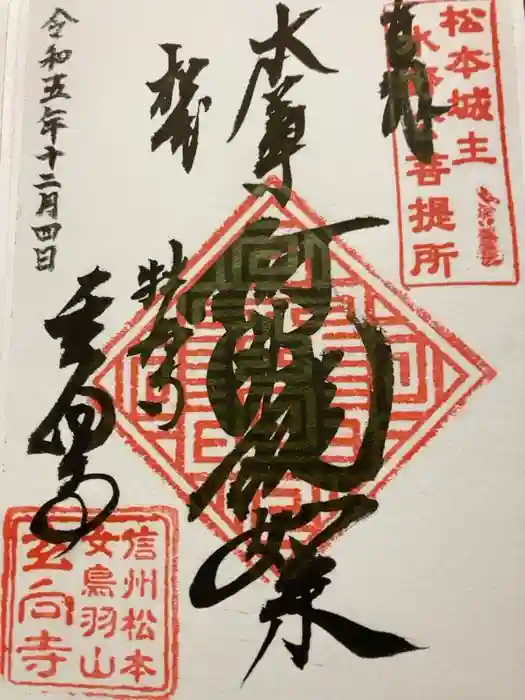 奉拝
松本城主
水野家菩提所
阿弥陀如来
牡丹寺
令和五年十二月四日
玄向寺
信州松本
女鳥羽山
玄向寺